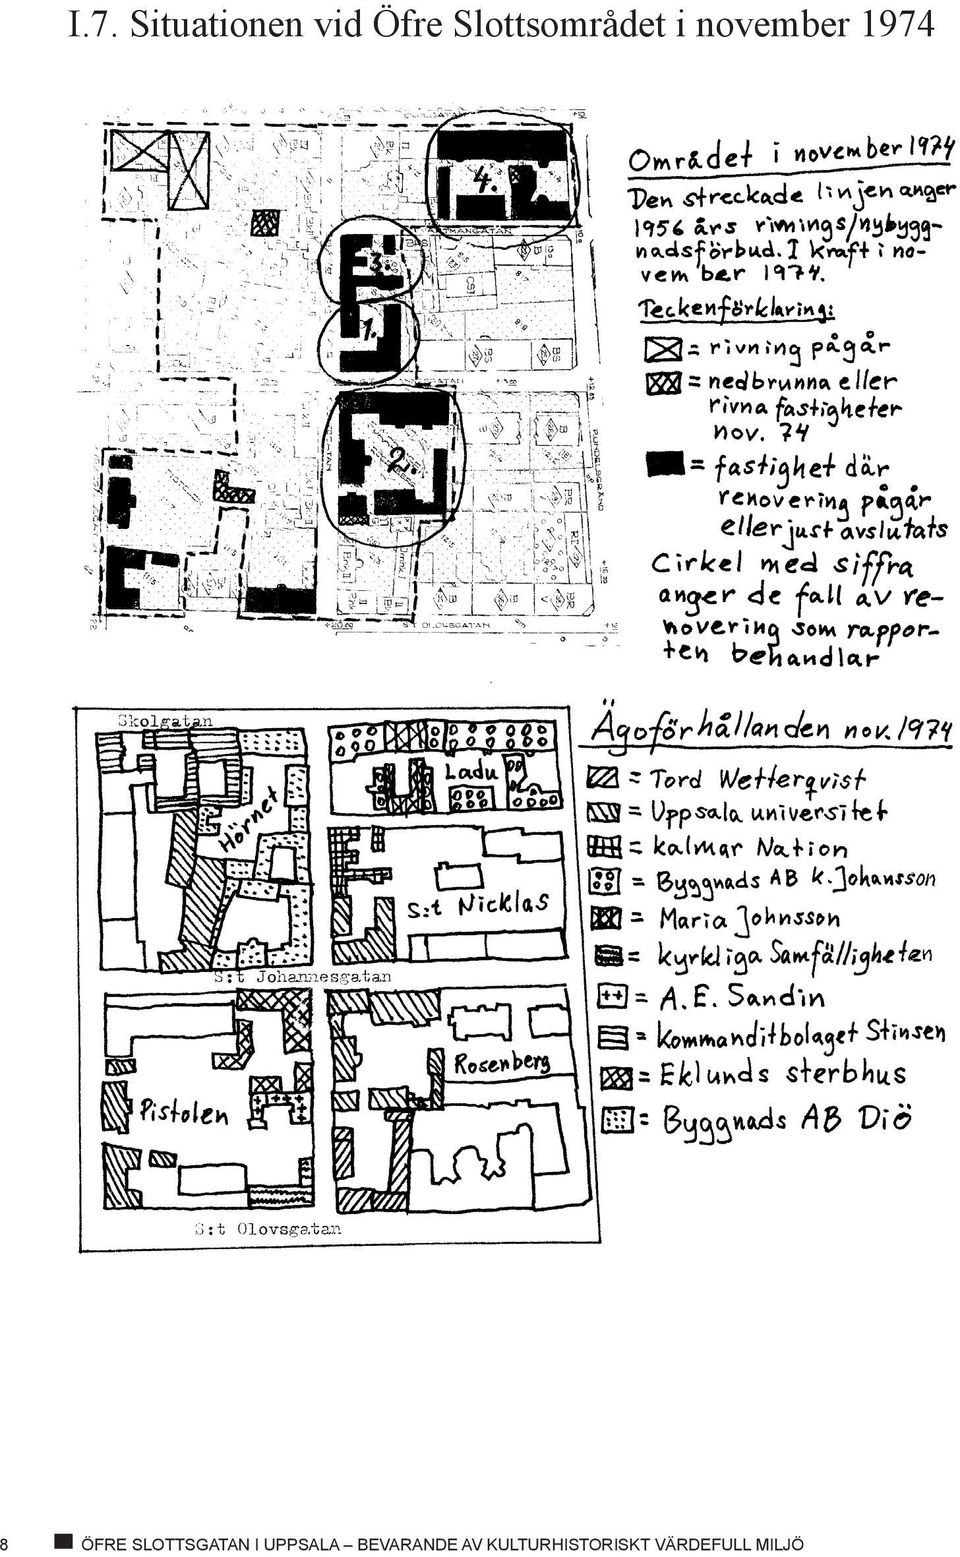 I.7. Situationen vid Öfre Slottsområdet i november 1974
Området i november 1974
Den streckade linjen anger
1956 års rivnings/nybygg-
nadsförbud. I kraft i no-
vember 1974.
Teckenförklaring:
= rivning pågår
= nedbrunna eller
rivna fastigheter
nov. 74
= fastighet där
renovering pågår
eller just avslutats
Cirkel med siffra
anger de fall av re-
novering som rappor-
ten behandlar
4.
3.
1.
2.
Skolgatan
Hörnet
Ladu
S:t Nicklas
S:t Johannesgatan
Pistolen
Rosenberg
S:t Olovsgatan
Ägoförhållanden nov. 1974
= Tord Wetterqvist
= Uppsala universitet
= kalmar Nation
= Byggnads AB K. Johansson
= Maria Johnsson
= kyrkliga Samfälligheten
= A. E. Sandin
= Kommanditbolaget Stinsen
= Eklunds sterbhus
= Byggnads AB Diö
8 ÖFRE SLOTTSGATAN I UPPSALA – BEVARANDE AV KULTURHISTORISKT VÄRDEFULL MILJÖ